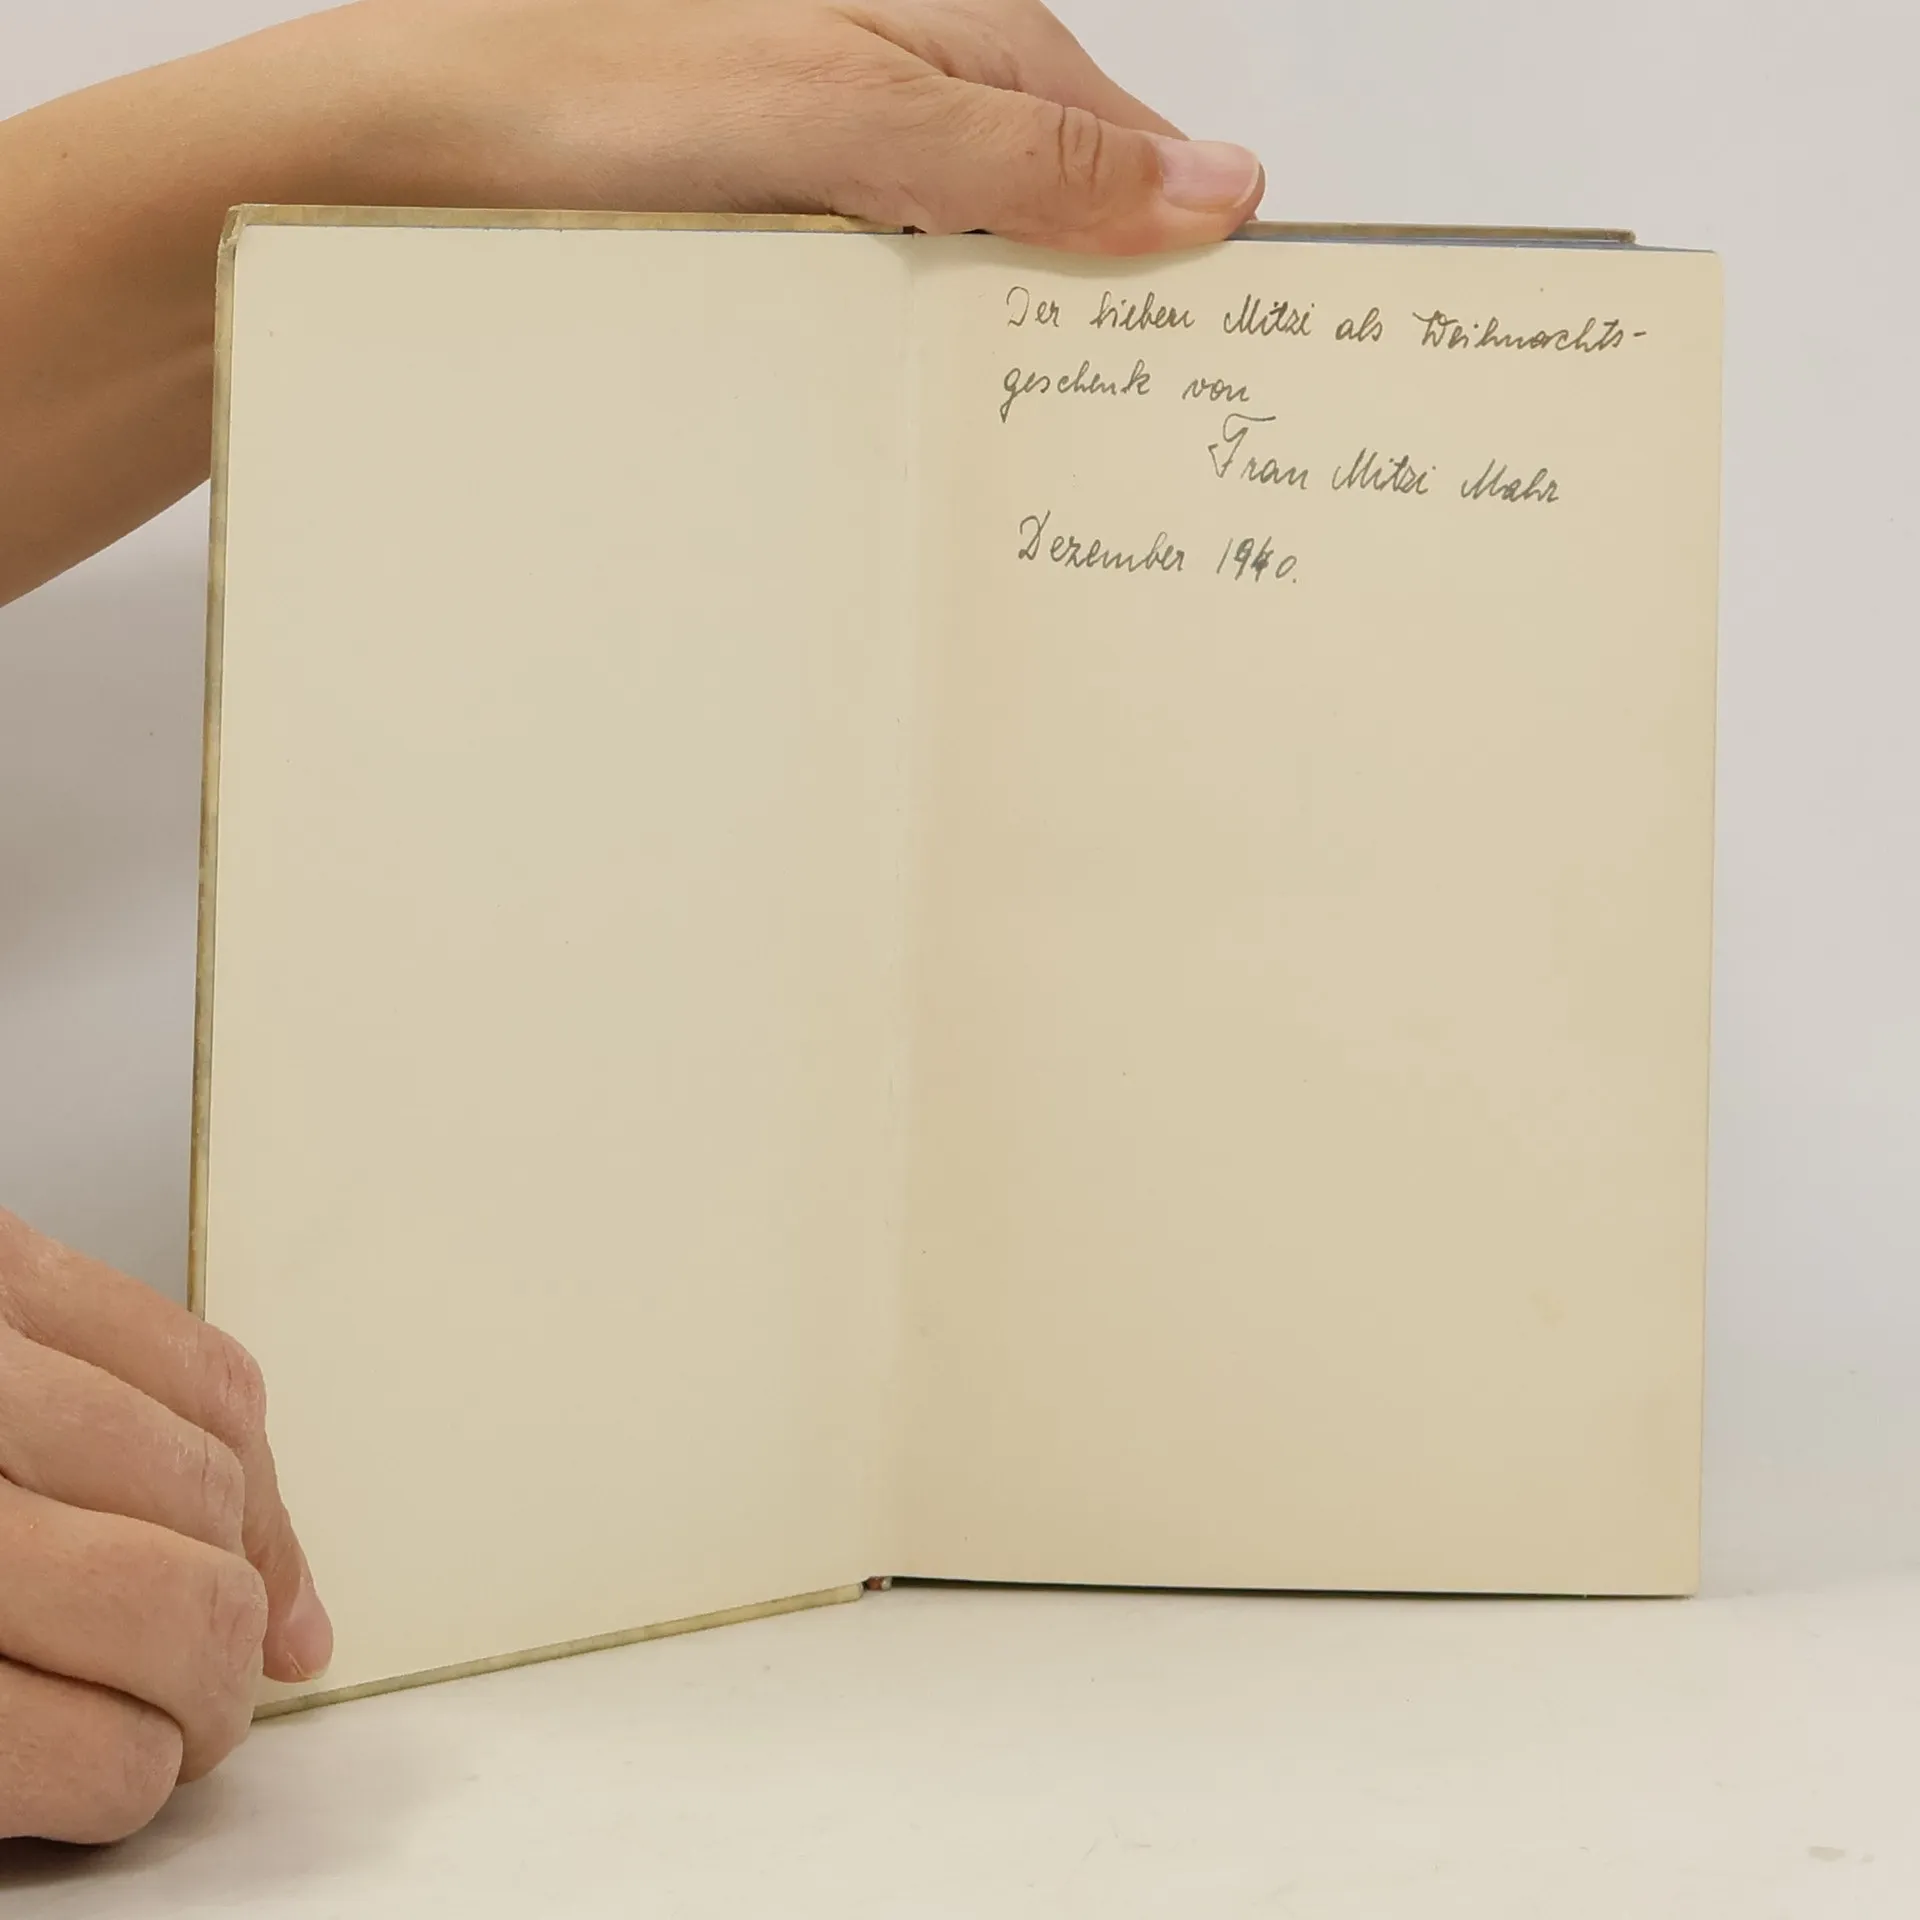 Der lieben Mitzi als Weihnachts-
geschenk von
Frau Mitzi Mahr
Dezember 1940.